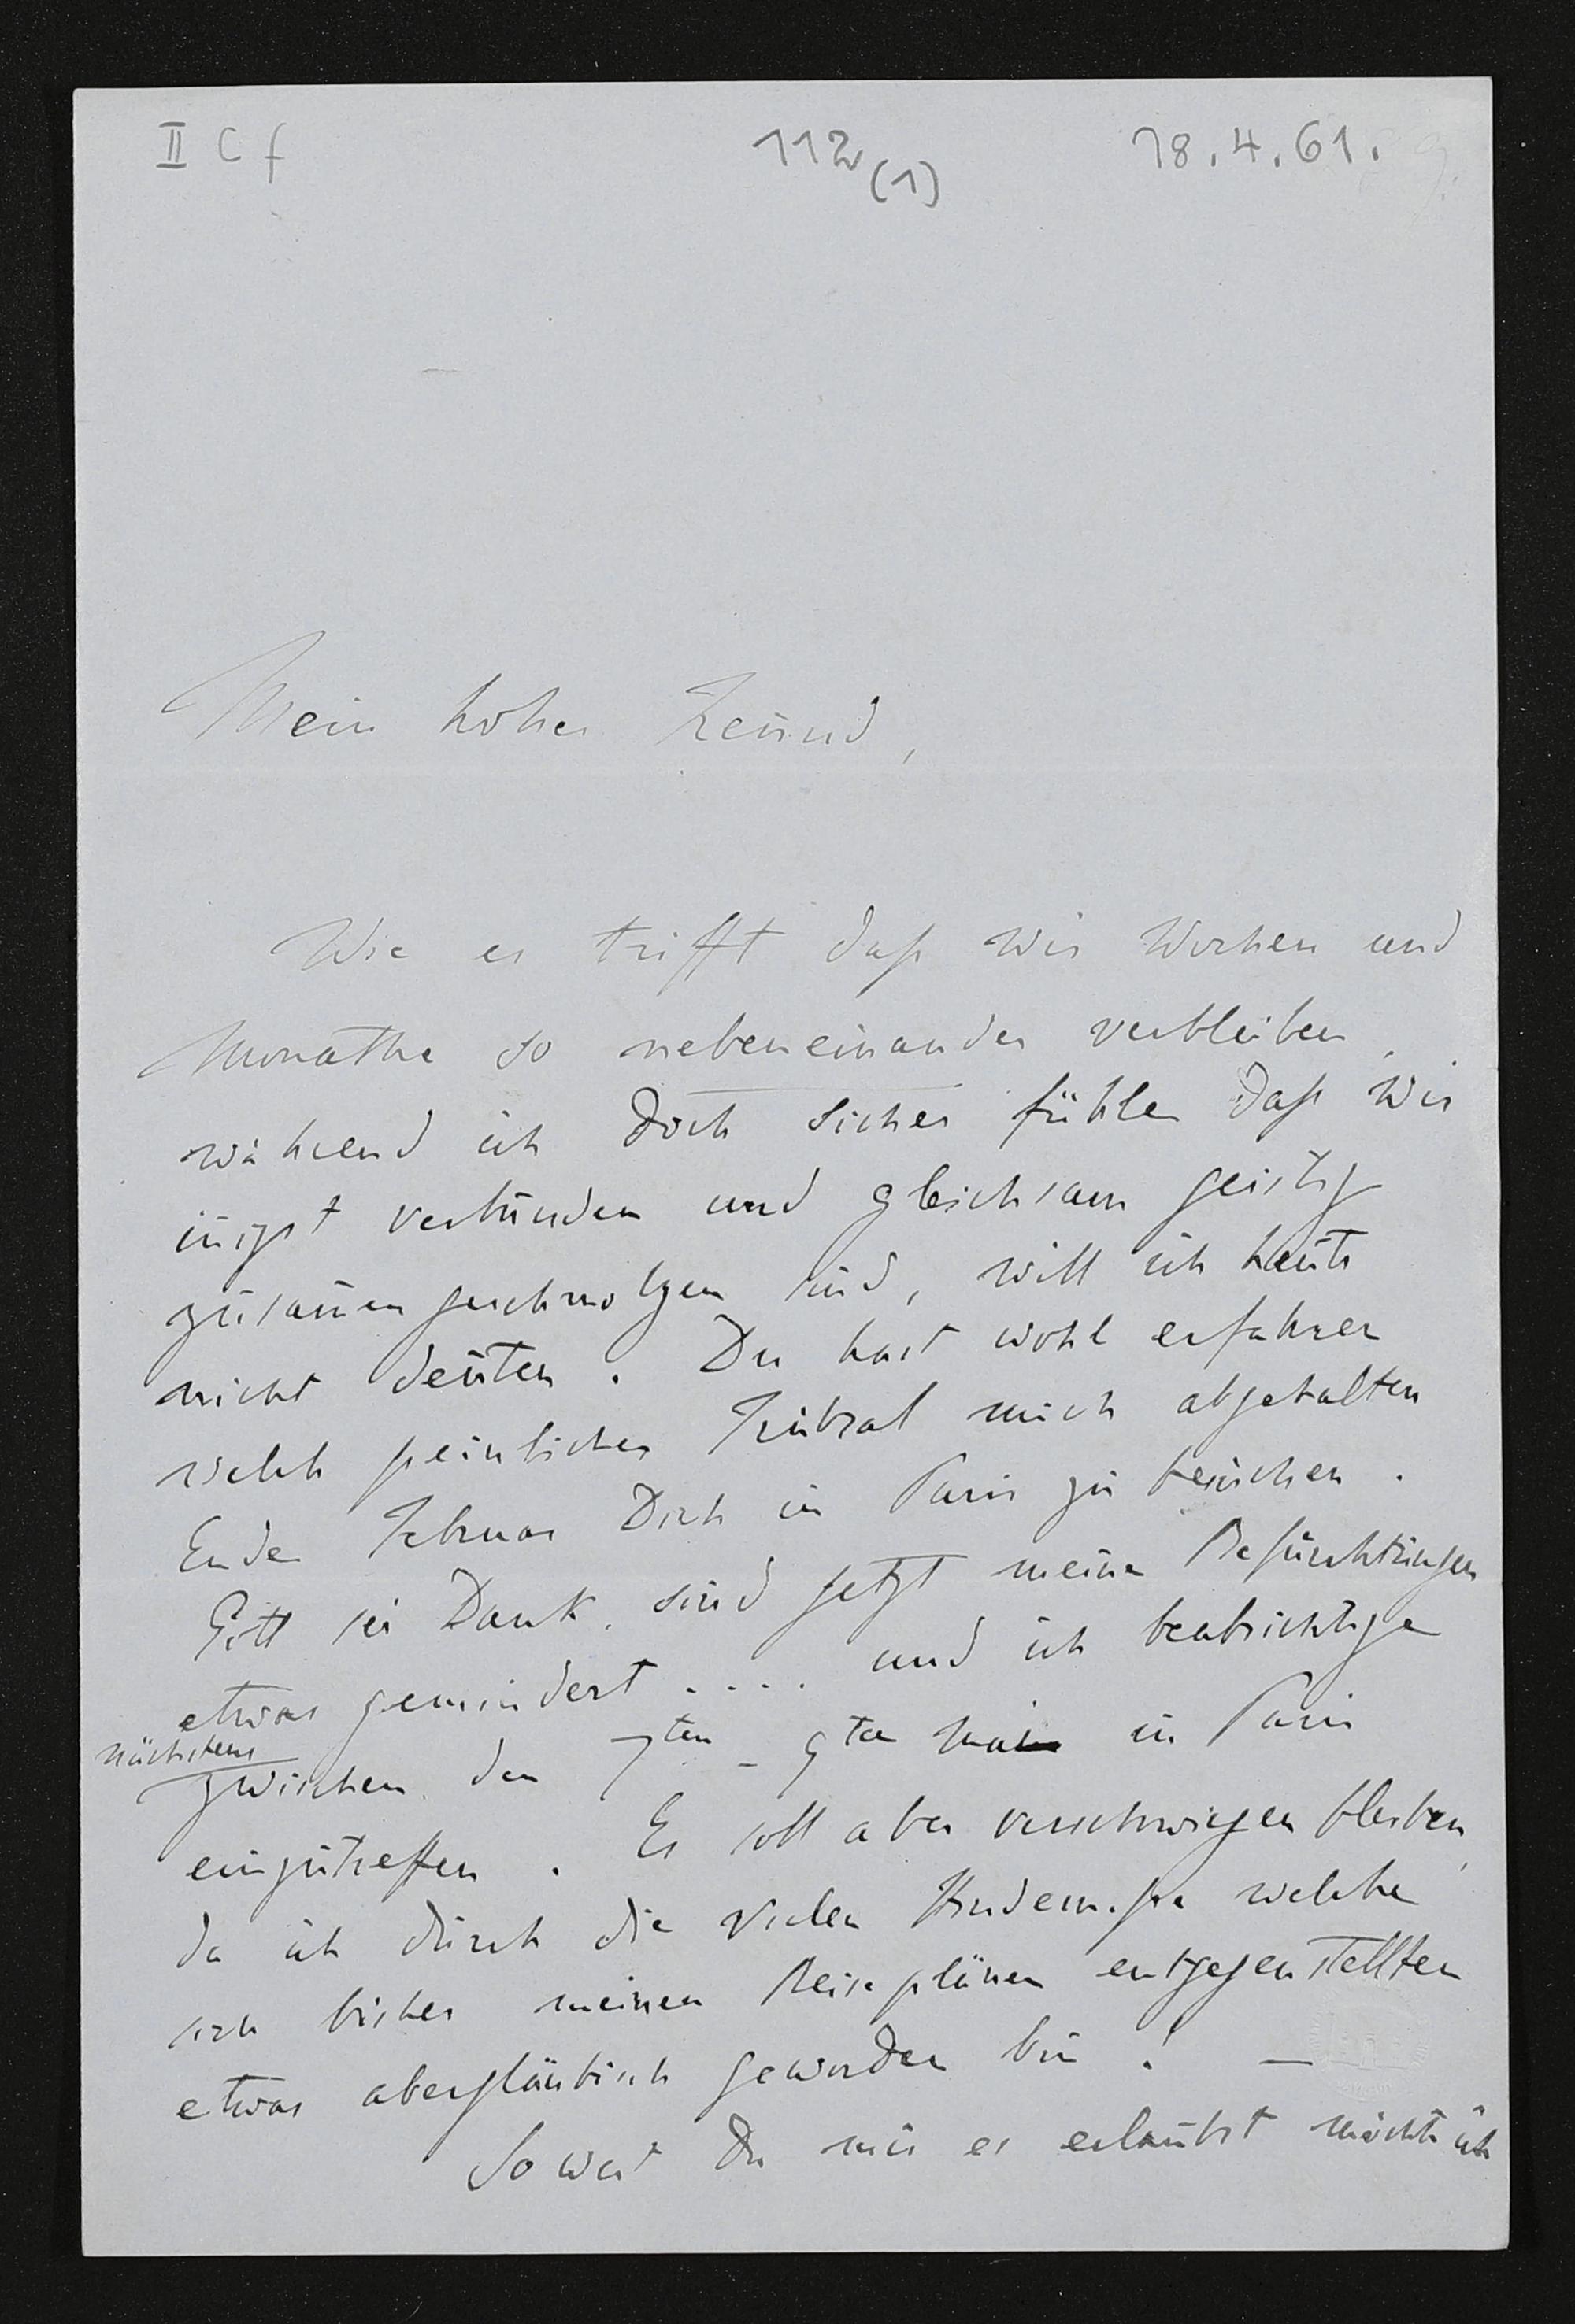 II C f 112 (1) 18.4.61.
Mein hoher Freund,
Wie es trifft daß wir Wochen und
Monathe so nebeneinander verbleiben,
während ich doch sicher fühle daß wir
innigst verbunden und gleichsam geistig
zusam̅en geschmolzen sind, will ich heute
nicht deuten. Du hast wohl erfahren
welch peinliches Trübsal mich abgehalten
Ende Februar Dich in Paris zu besuchen.
Gott sei Dank, sind jetzt meine Befürchtungen
etwas gemindert .... und ich beabsichtige
nächstens
zwischen den 7ten - 9ten Mai in Paris
einzutreffen. Es soll aber verschwiegen bleiben,
da ich durch die vielen Hindernisse welche
sich bisher meinen Reiseplänen entgegenstellten
etwas abergläubisch geworden bin! —
So weit Du mir es erlaubst möchte ich